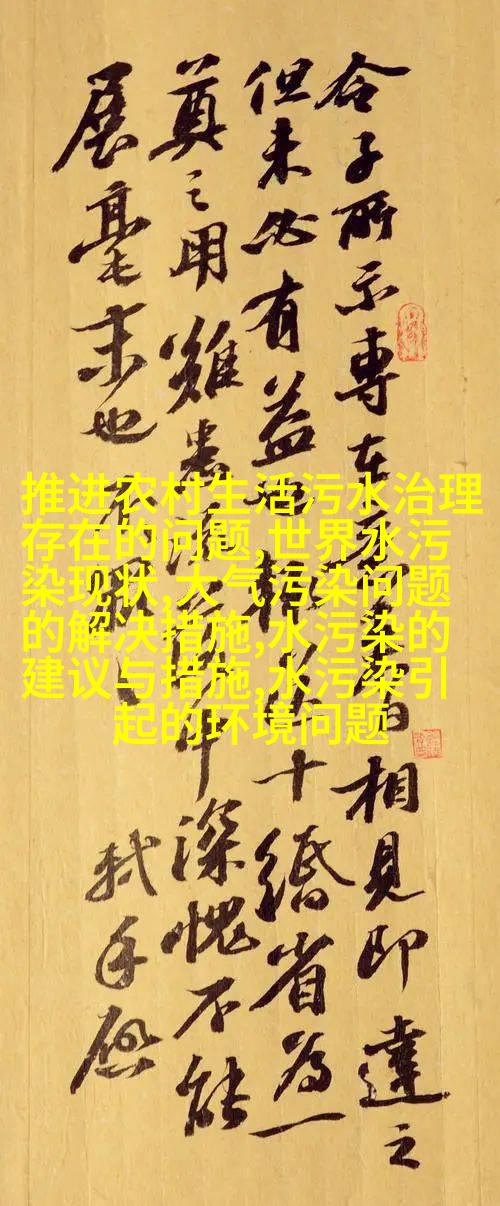 合子所示專在相見即達之
但未必有益也輒送十緡省為一
奠之用雖中深愧不能
展毫末也
軾手啟
推进农村生活污水治理
存在的问题,世界水污
染现状,大气污染问题
的解决措施,水污染的
建议与措施,水污染引
起的环境问题